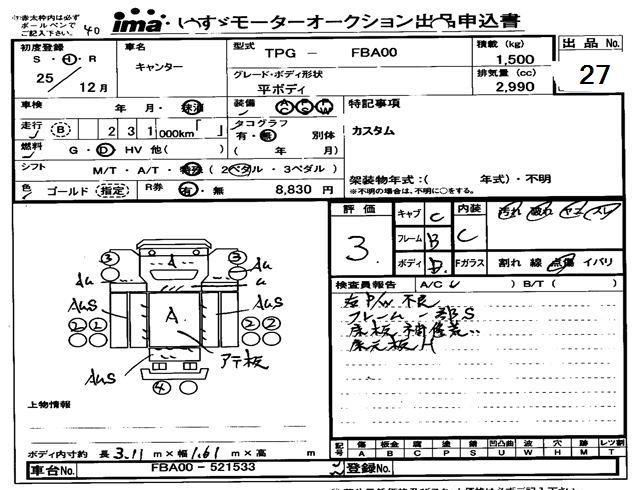 ima いすゞモーターオークション出品申込書
40
初度登録 S・H・R 25 12月
車名 キャンター
型式 TPG － FBA00
グレード・ボディ形状 平ボディ
積載 (kg) 1,500
排気量 (cc) 2,990
出品No. 27
車検 年 月・抹消
装備 AC PS PW
走行 B 231000km「 」
タコグラフ 有・無 別体
( 年 月)
燃料 G・D・HV 他( )
シフト M/T・A/T・特殊 (2ペダル・3ペダル)
色 ゴールド (指定)
R券 有・無 8,830 円
特記事項
カスタム
架装物年式:( 年式)・不明
※不明の場合は、不明に○をする。
評価 3
キャブ C
フレーム B
ボディ D
内装 C
汚れ 破れ ヤニ スレ
Fガラス 割れ 線 点傷 イバリ
検査員報告 A/C( ) B/T( )
右P/W 不良
フレーム一部S
床板補修荒
床元板H
3 A 3
Au
Au
a
AuS AuS
A
2 2 2 2
アテ板
AuS
4
上物情報
ボディ内寸約 長 3.11 m×幅 1.61 m×高 m
記号 傷 板金 腐 塗 錆 凹凸曲 波 穴 跡 レツ割
A B C P S U W H M T
車台No. FBA00－521533
登録No.